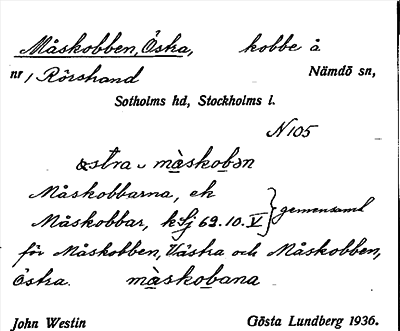 Måskobben, Östra, kobbe å
nr 1 Rörstrand Nämdö sn,
Sotholms hd, Stockholms l.
N 105
østra måskobən
Måskobbarna, ek
Måskobbar, k Sj 69.10.V } gemensamt
för Måskobben, Västra och Måskobben,
Östra. måskobana
John Westin Gösta Lundberg 1936.